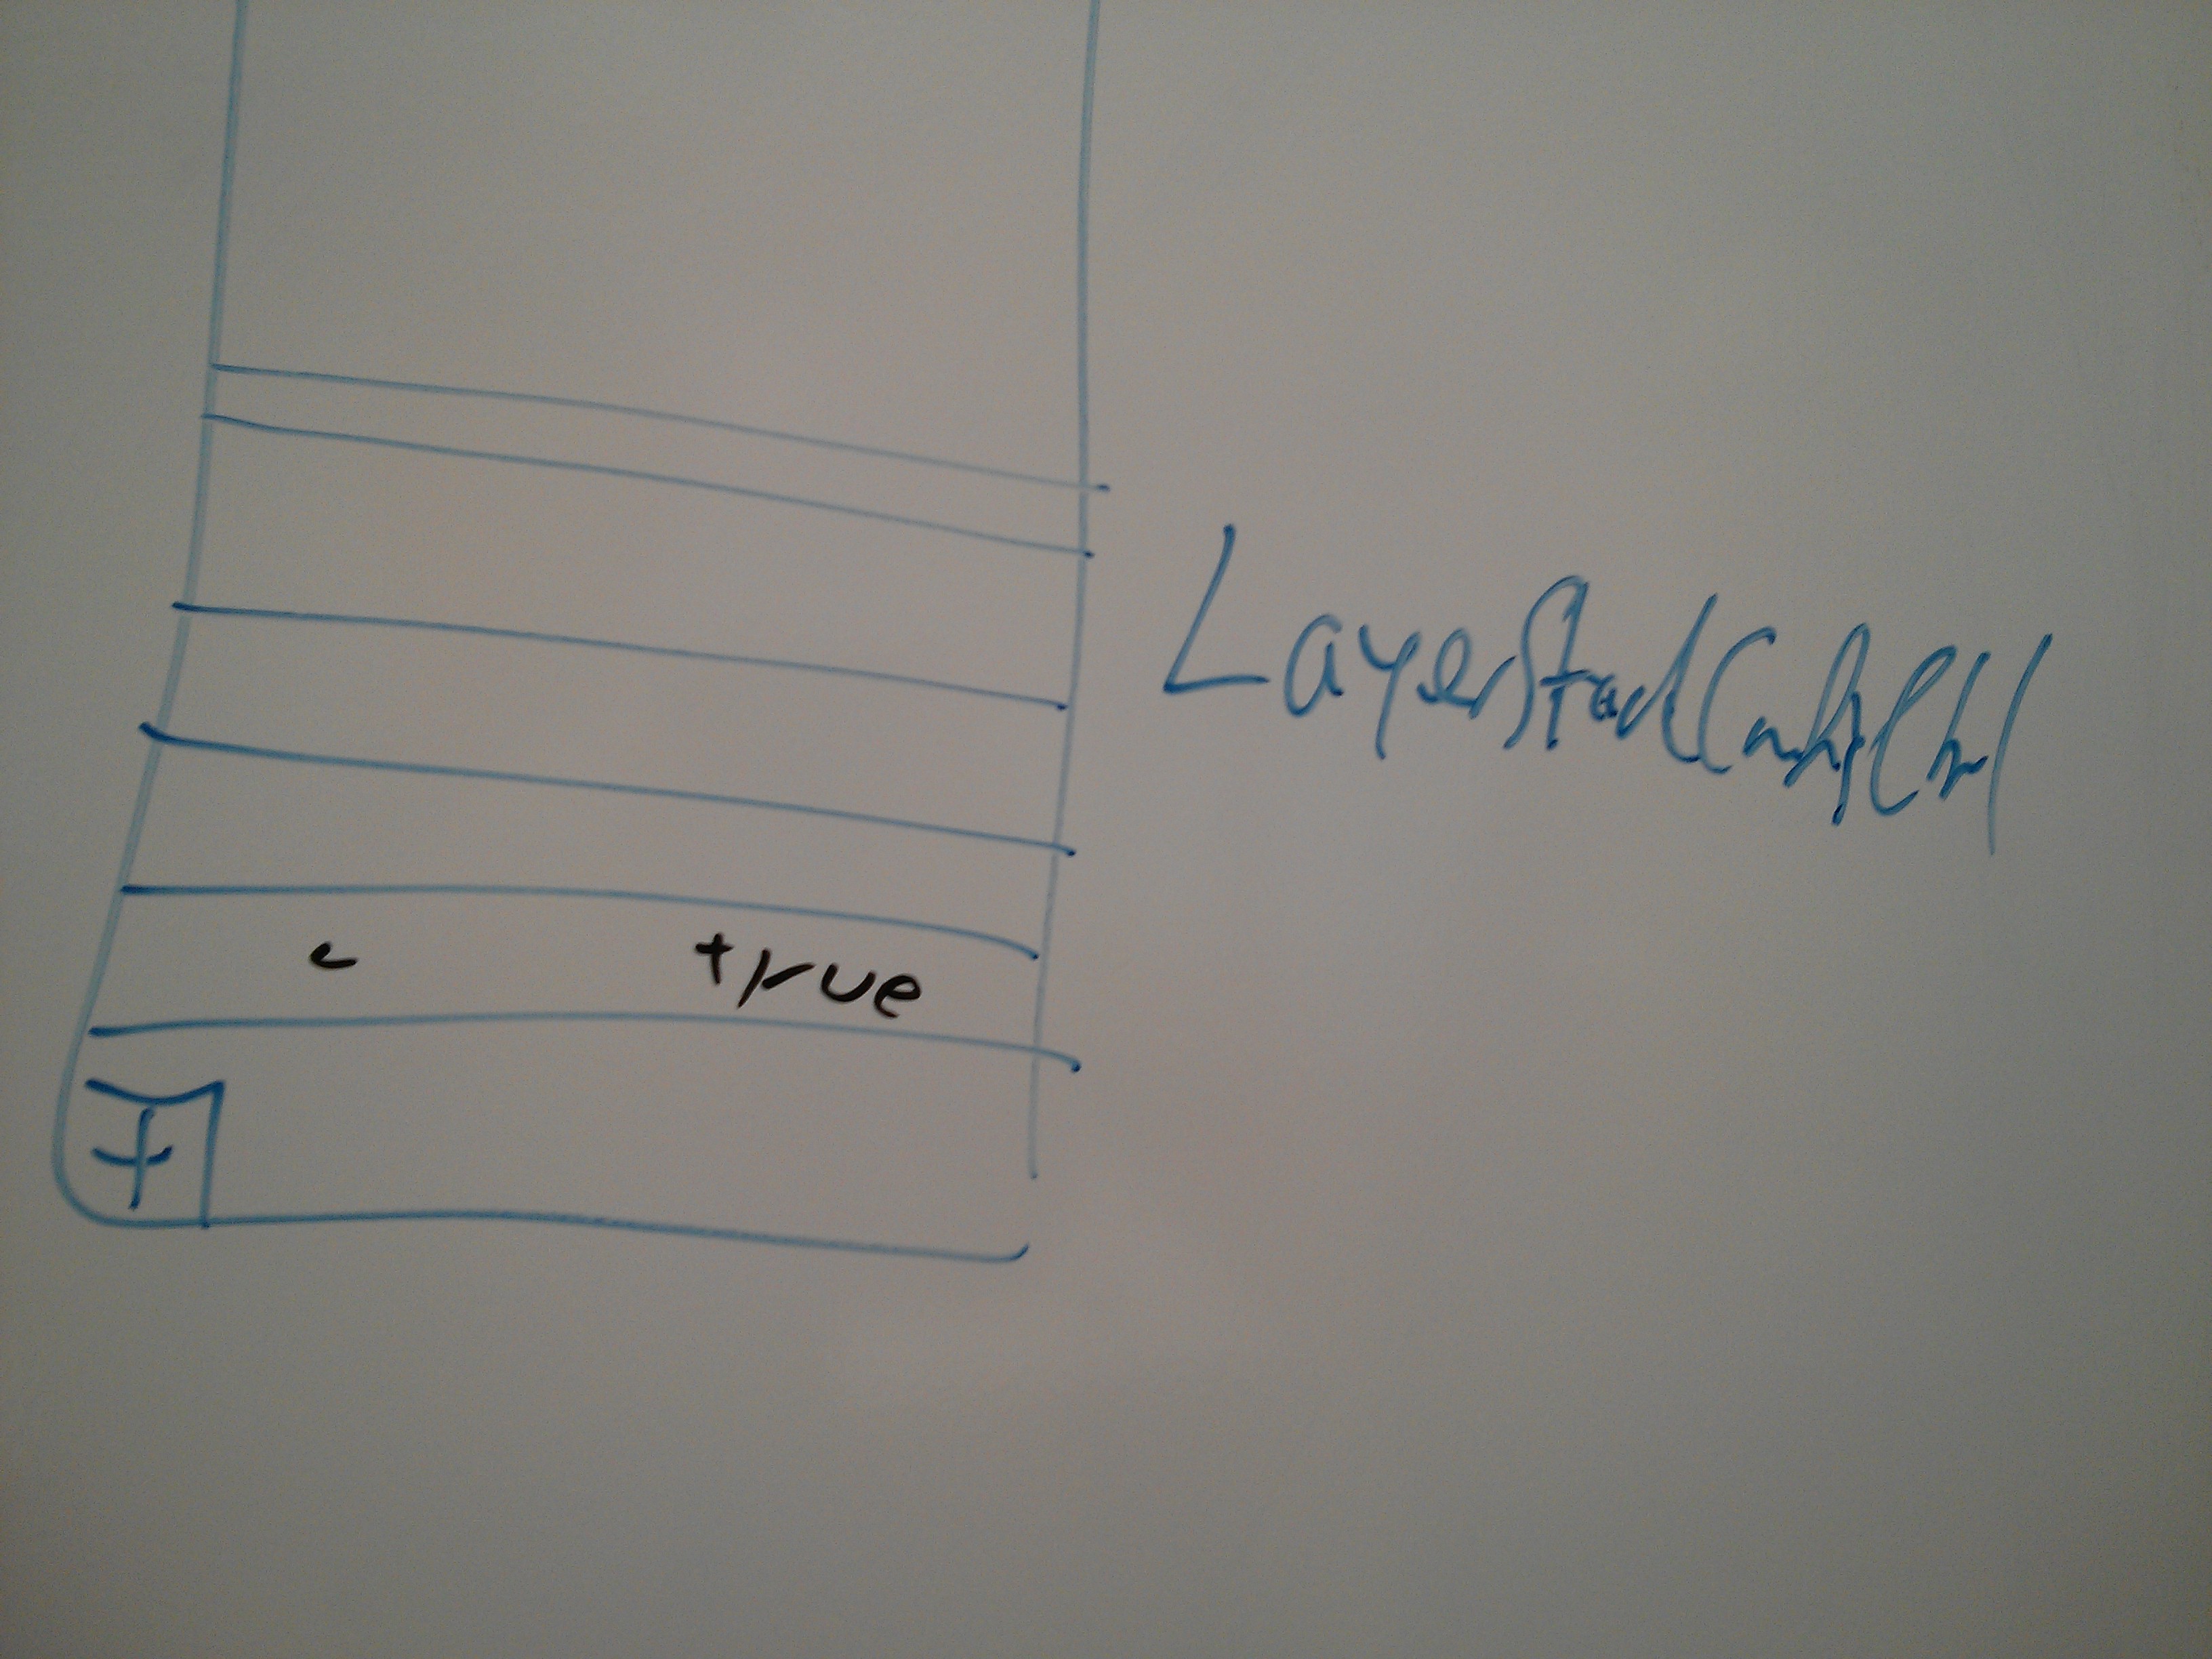 LayerStackConfigCtrl
c true
+